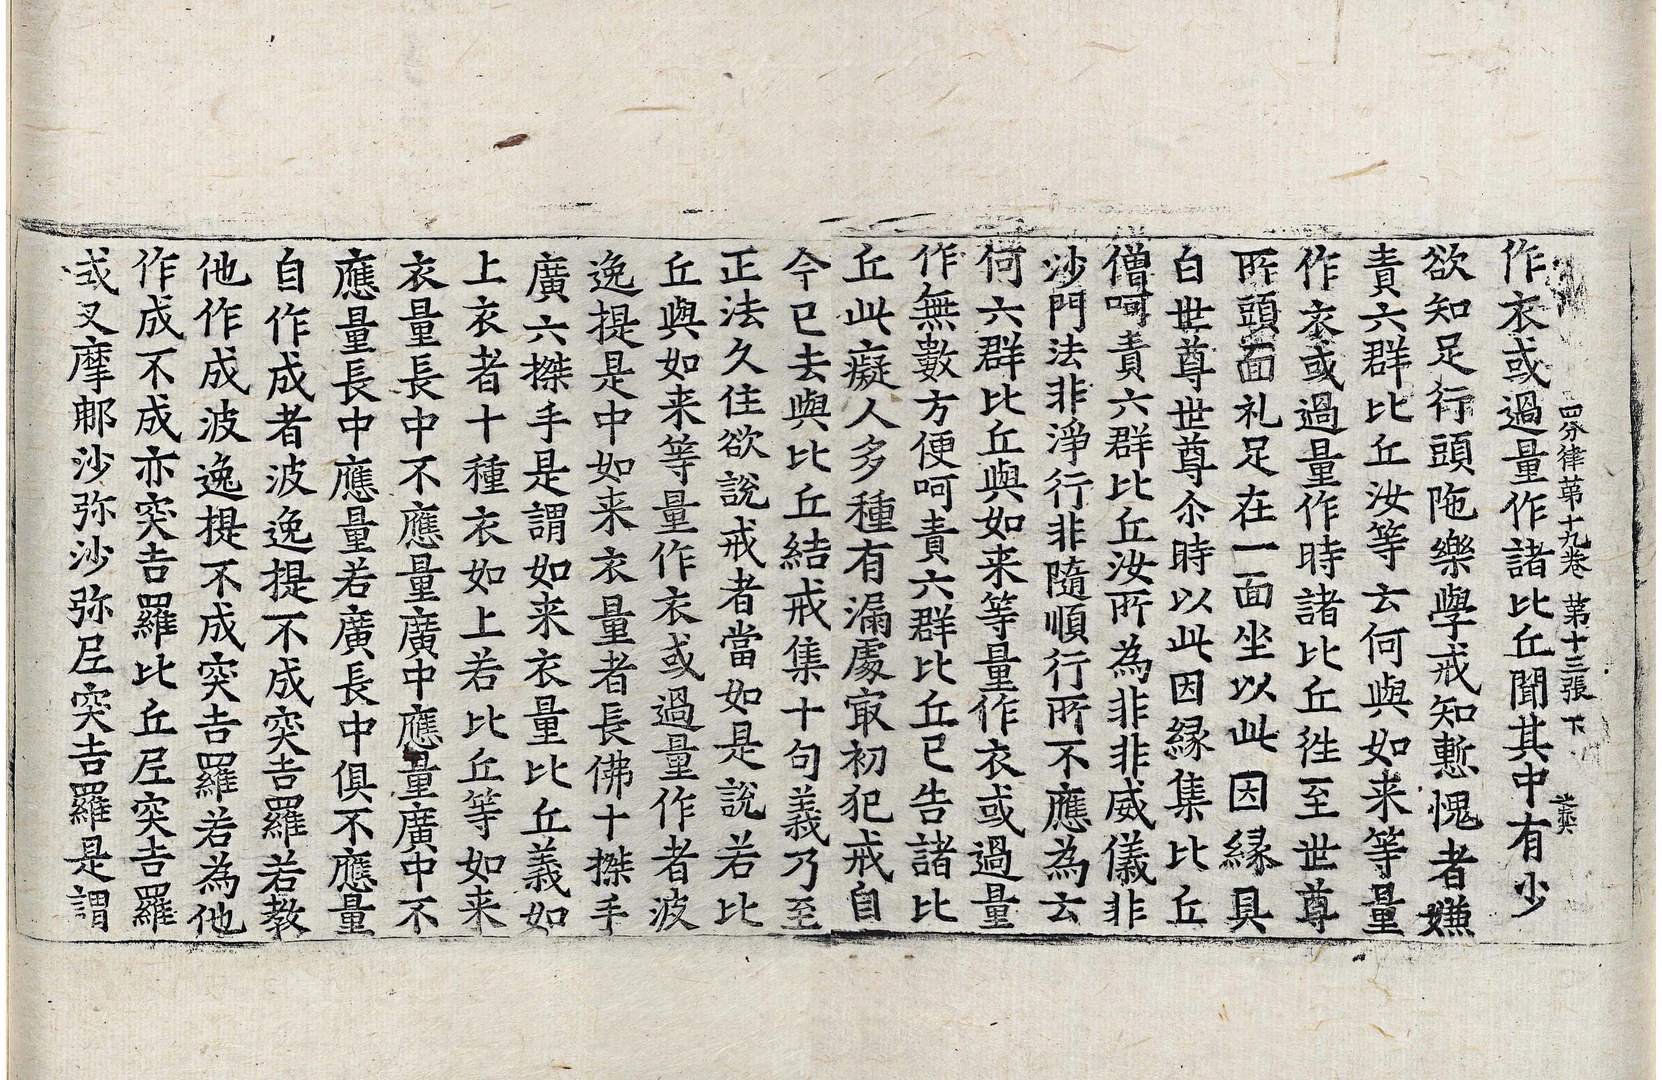 四分律苐十九卷 第十三張 下
作衣或過量作諸比丘聞其中有少
欲知足行頭陁樂學戒知慙愧者嫌
責六群比丘汝等云何與如来等量
作衣或過量作時諸比丘徃至世尊
所頭面礼足在一面坐以此因緣具
白世尊世尊尒時以此因緣集比丘
僧呵責六群比丘汝所為非非威儀非
沙門法非淨行非隨順行所不應為云
何六群比丘與如来等量作衣或過量
作無數方便呵責六群比丘已告諸比
丘此癡人多種有漏處㝡初犯戒自
今已去與比丘結戒集十句義乃至
正法久住欲說戒者當如是說若比
丘與如来等量作衣或過量作者波
逸提是中如来衣量者長佛十搩手
廣六搩手是謂如来衣量比丘義如
上衣者十種衣如上若比丘等如来
衣量長中不應量廣中應量廣中不
應量長中應量若廣長中俱不應量
自作成者波逸提不成突吉羅若教
他作成波逸提不成突吉羅若為他
作成不成亦突吉羅比丘尼突吉羅
式叉摩那沙弥沙弥尼突吉羅是謂